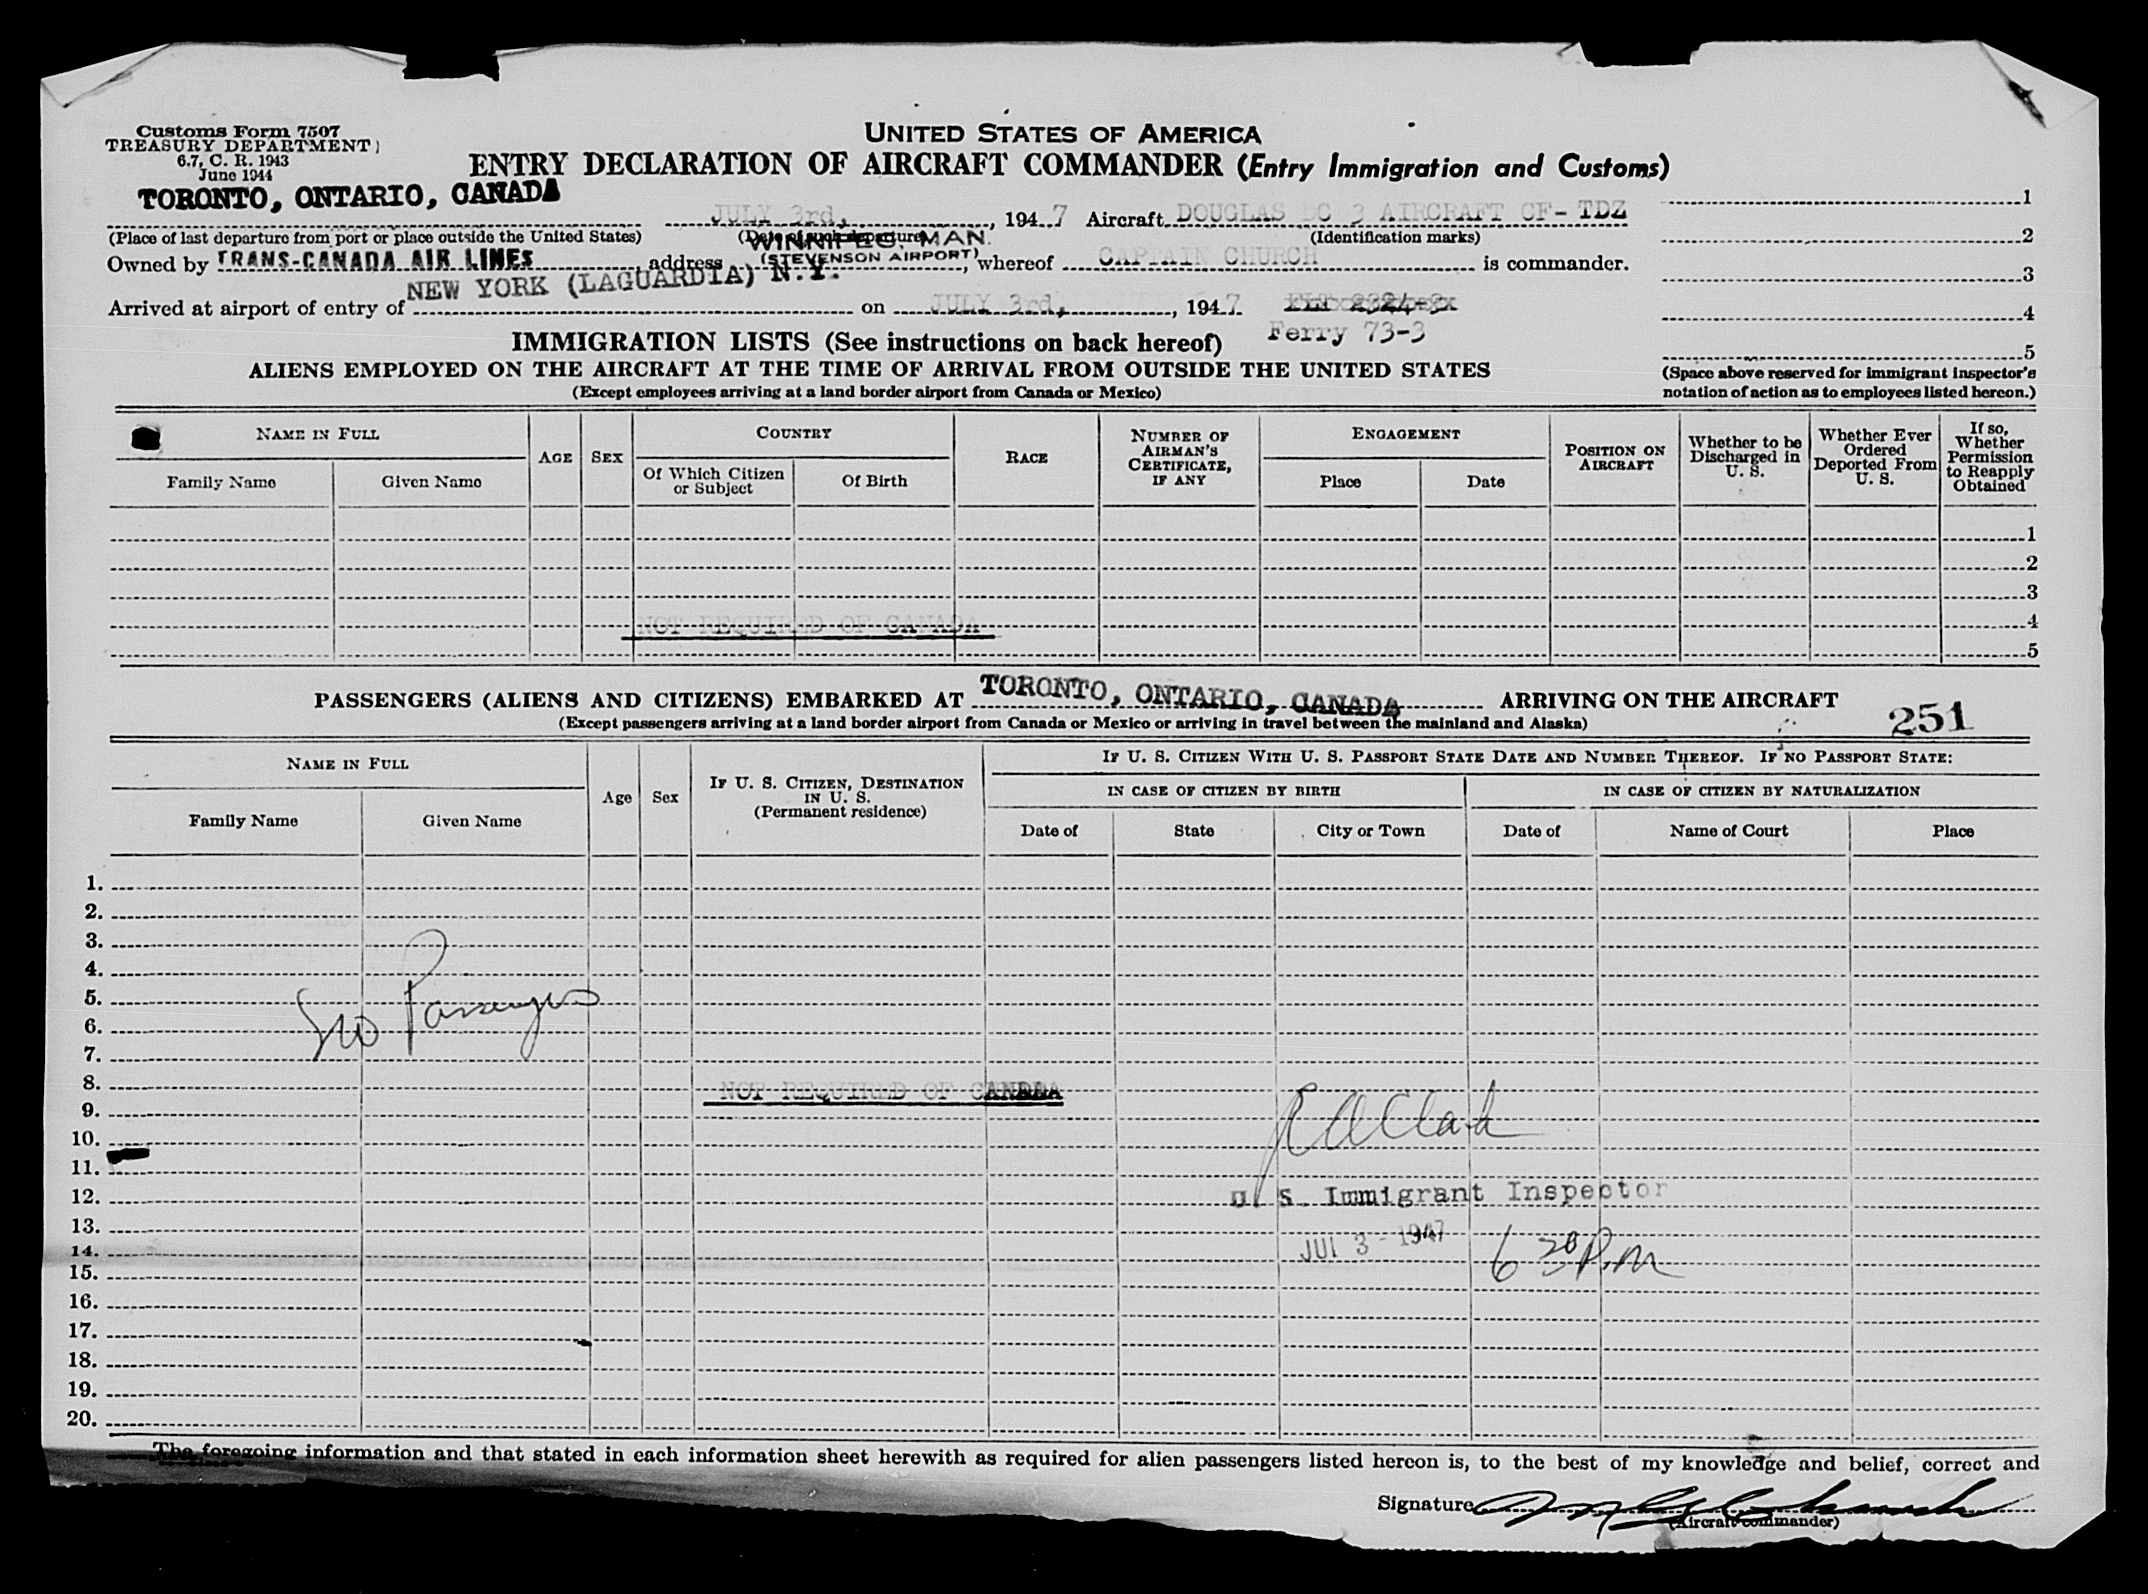 Customs Form 7507
TREASURY DEPARTMENT
6.7, C. R. 1943
June 1944
UNITED STATES OF AMERICA
ENTRY DECLARATION OF AIRCRAFT COMMANDER (Entry Immigration and Customs)
TORONTO, ONTARIO, CANADA
JULY 3rd, , 194 7 Aircraft DOUGLAS DC 3 AIRCRAFT CF- TDZ
1
(Place of last departure from port or place outside the United States) (Date of such departure) (Identification marks)
2
WINNIPEG, MAN.
(STEVENSON AIRPORT)
Owned by TRANS-CANADA AIR LINES address , whereof CAPTAIN CHURCH is commander.
3
NEW YORK (LAGUARDIA) N.Y.
Arrived at airport of entry of on JULY 3rd, , 194 7 FLT 2324-3
4
Ferry 73-3
IMMIGRATION LISTS (See instructions on back hereof)
5
ALIENS EMPLOYED ON THE AIRCRAFT AT THE TIME OF ARRIVAL FROM OUTSIDE THE UNITED STATES
(Except employees arriving at a land border airport from Canada or Mexico)
(Space above reserved for immigrant inspector's
notation of action as to employees listed hereon.)
NAME IN FULL
Family Name
Given Name
AGE
SEX
COUNTRY
Of Which Citizen
or Subject
Of Birth
RACE
NUMBER OF
AIRMAN'S
CERTIFICATE,
IF ANY
ENGAGEMENT
Place
Date
POSITION ON
AIRCRAFT
Whether to be
Discharged in
U. S.
Whether Ever
Ordered
Deported From
U. S.
If so,
Whether
Permission
to Reapply
Obtained
1
2
3
NOT REQUIRED OF CANADA 4
5
PASSENGERS (ALIENS AND CITIZENS) EMBARKED AT TORONTO, ONTARIO, CANADA ARRIVING ON THE AIRCRAFT
(Except passengers arriving at a land border airport from Canada or Mexico or arriving in travel between the mainland and Alaska)
251
NAME IN FULL
Family Name
Given Name
Age
Sex
IF U. S. CITIZEN, DESTINATION
IN U. S.
(Permanent residence)
IF U. S. CITIZEN WITH U. S. PASSPORT STATE DATE AND NUMBER THEREOF. IF NO PASSPORT STATE:
IN CASE OF CITIZEN BY BIRTH
IN CASE OF CITIZEN BY NATURALIZATION
Date of
State
City or Town
Date of
Name of Court
Place
1.
2.
3.
4.
5.
No Passengers
6.
7.
8.
NOT REQUIRED OF CANADA
9.
R A Clark
10.
11.
12.
U. S. Immigrant Inspector
13.
JUL 3 - 1947 6 30 P.m
14.
15.
16.
17.
18.
19.
20.
The foregoing information and that stated in each information sheet herewith as required for alien passengers listed hereon is, to the best of my knowledge and belief, correct and
Signature
(Aircraft commander)